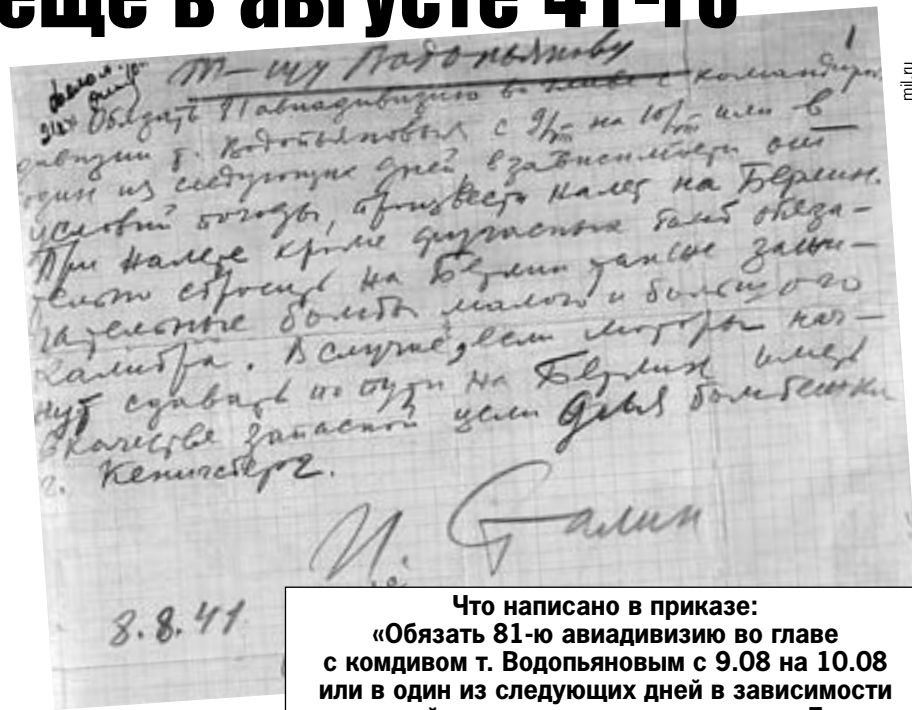 еще в августе 41-го
mil.ru
1
Т-щу Водопьянову
Обязать 81 авиадивизию во главе с командиром
дивизии т. Водопьяновым с 9/ на 10/ или в
один из следующих дней, в зависимости от
условий погоды, произвести налет на Берлин.
При налете кроме фугасных бомб обяза-
тельно сбросить на Берлин также зажи-
гательные бомбы малого и большого
калибра. В случае, если моторы нач-
нут сдавать по пути на Берлин иметь
в качестве запасной цели для бомбежки
г. Кенигсберг.
И. Сталин
8.8.41
Что написано в приказе:
«Обязать 81-ю авиадивизию во главе
с комдивом т. Водопьяновым с 9.08 на 10.08
или в один из следующих дней в зависимости